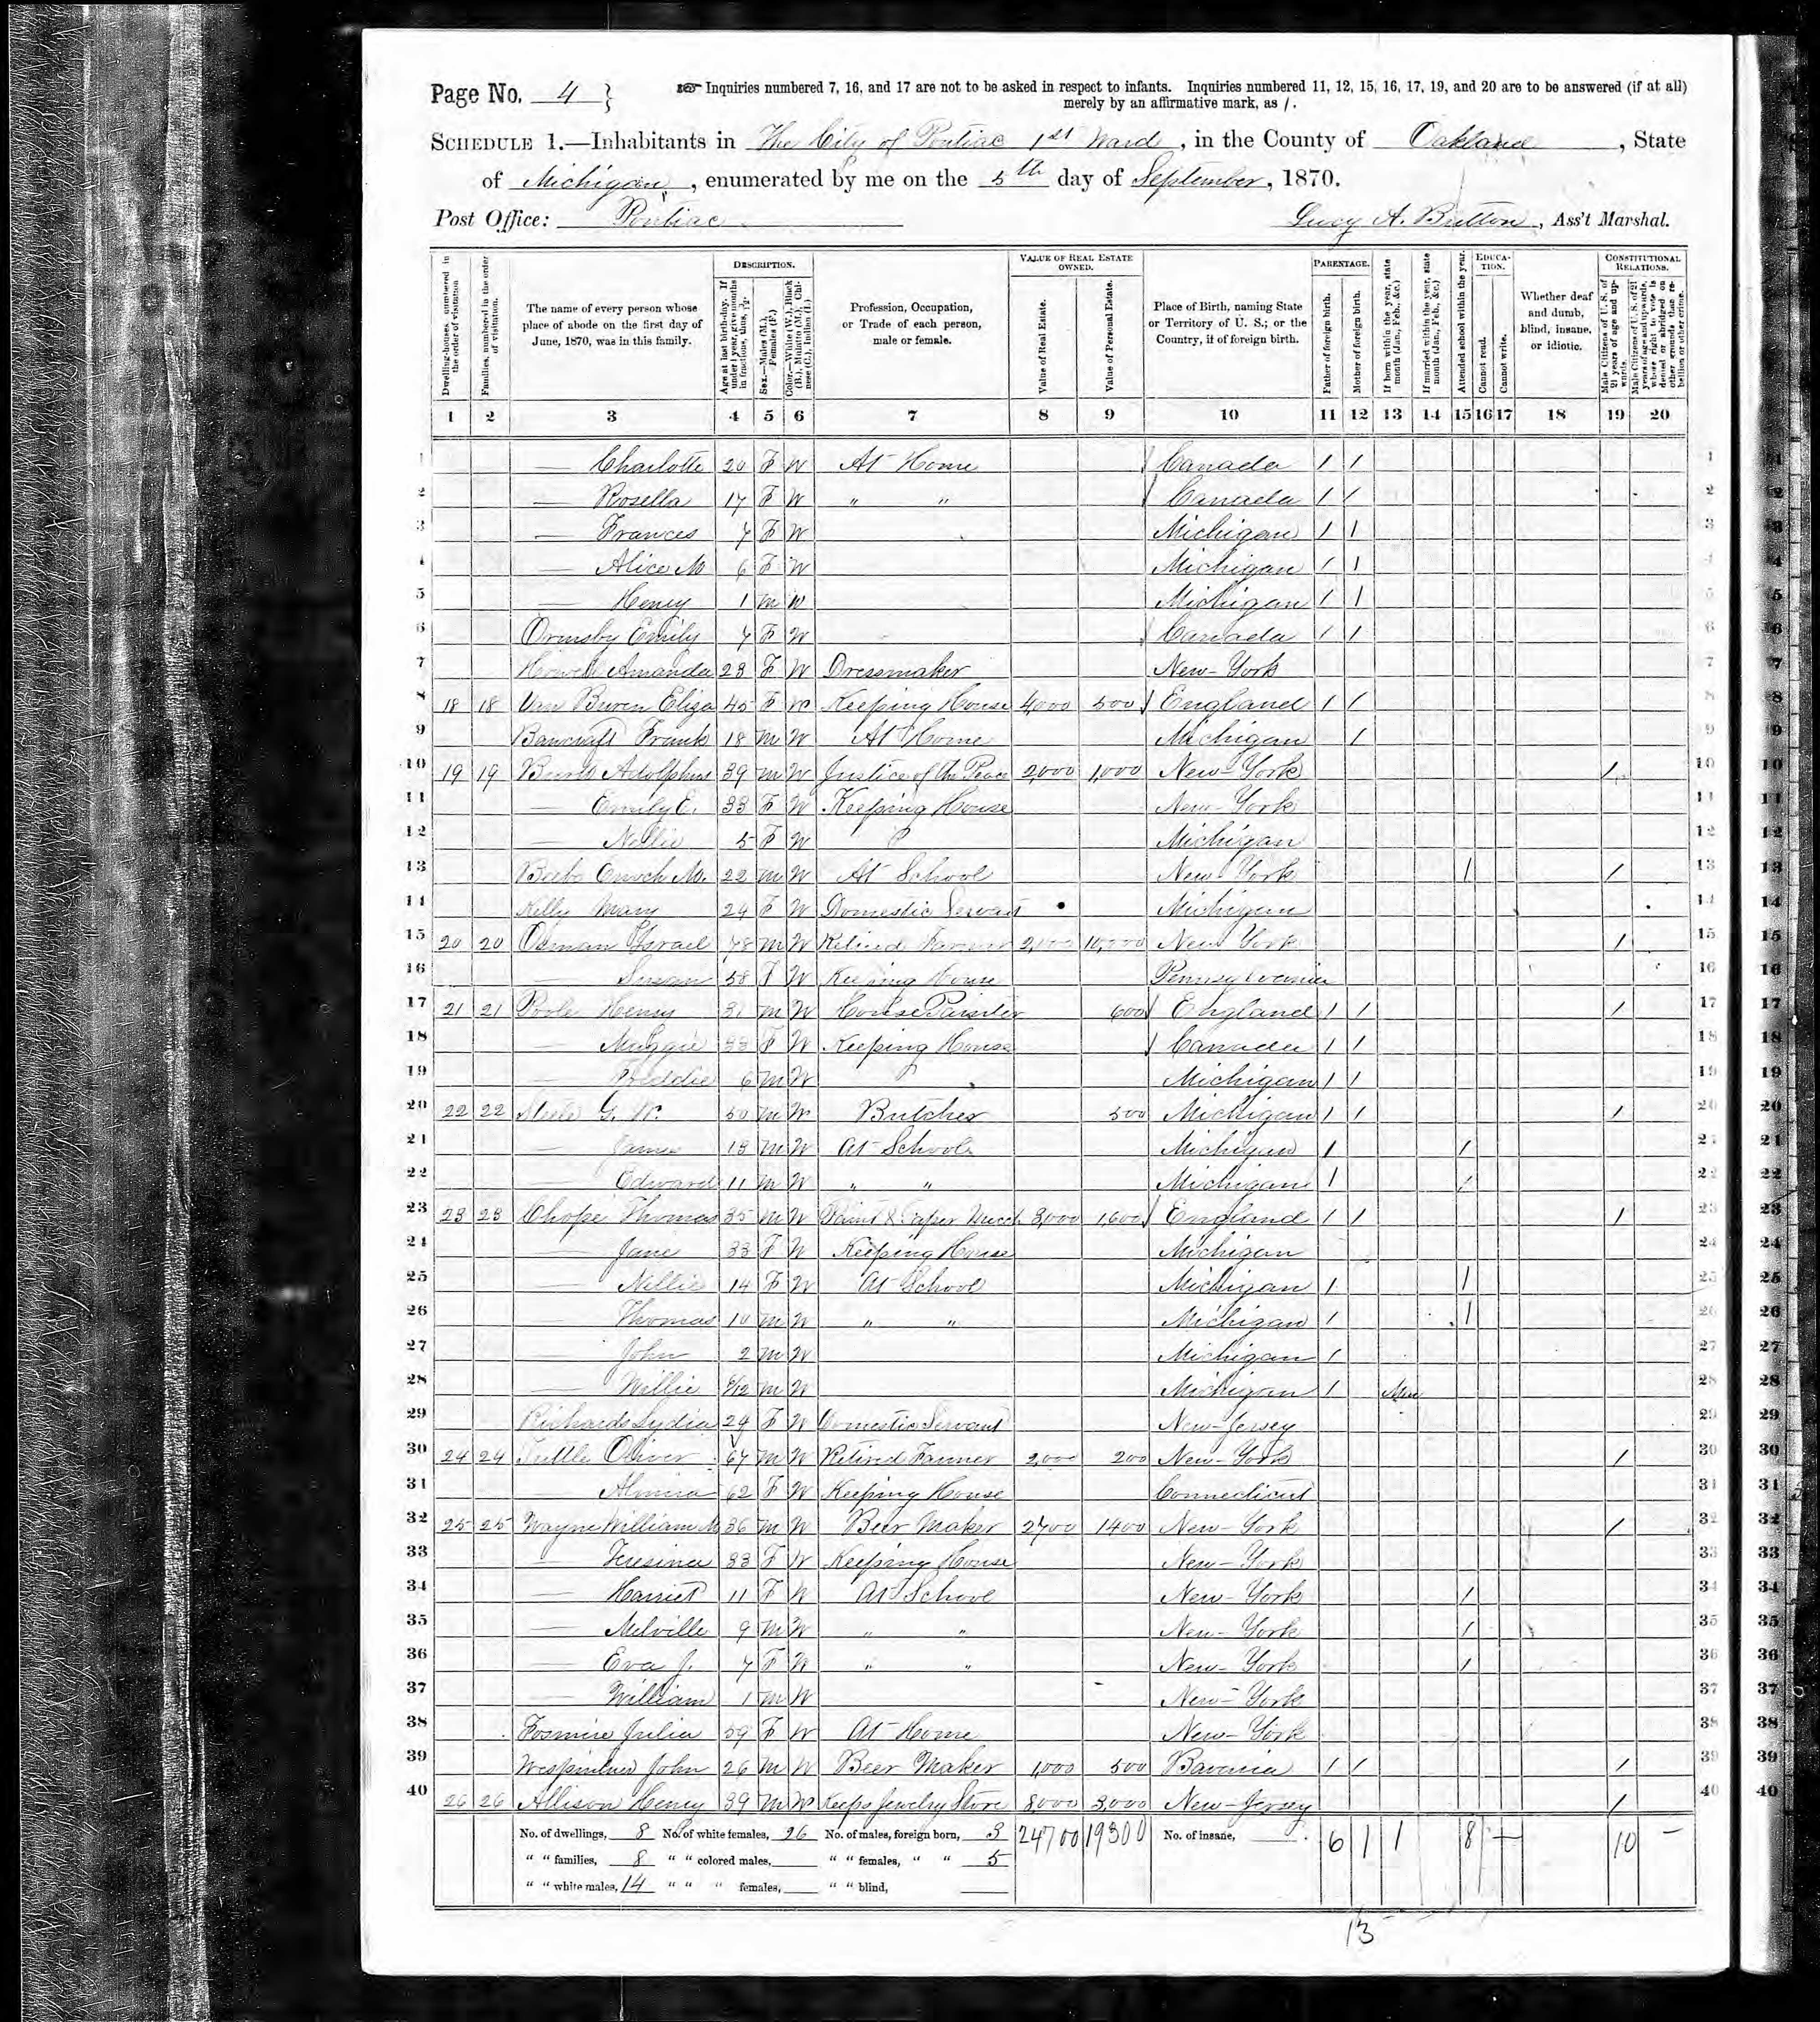 Page No. 4 } ☞ Inquiries numbered 7, 16, and 17 are not to be asked in respect to infants. Inquiries numbered 11, 12, 15, 16, 17, 19, and 20 are to be answered (if at all)
merely by an affirmative mark, as /.
SCHEDULE 1.—Inhabitants in The City of Pontiac 1st Ward, in the County of Oakland, State
of Michigan, enumerated by me on the 5th day of September, 1870.
Post Office: Pontiac Lucy A. Britton, Ass't Marshal.
Dwelling-houses, numbered in the order of visitation
Families, numbered in the order of visitation.
The name of every person whose place of abode on the first day of June, 1870, was in this family.
DESCRIPTION.
Age at last birth-day. If under 1 year, give months in fractions, thus, 3/12.
Sex.—Males (M.), Females (F.)
Color.—White (W.), Black (B.), Mulatto (M.), Chinese (C.), Indian (I.)
Profession, Occupation, or Trade of each person, male or female.
VALUE OF REAL ESTATE OWNED.
Value of Real Estate.
Value of Personal Estate.
Place of Birth, naming State or Territory of U. S.; or the Country, if of foreign birth.
PARENTAGE.
Father of foreign birth.
Mother of foreign birth.
If born within the year, state month (Jan., Feb., &c.)
If married within the year, state month (Jan., Feb., &c.)
Attended school within the year.
EDUCATION.
Cannot read.
Cannot write.
Whether deaf and dumb, blind, insane, or idiotic.
CONSTITUTIONAL RELATIONS.
Male Citizens of U. S. of 21 years of age and upwards.
Male Citizens of U. S. of 21 years of age and upwards, whose right to vote is denied or abridged on other grounds than rebellion or other crime.
1 2 3 4 5 6 7 8 9 10 11 12 13 14 15 16 17 18 19 20
1 — Charlotte 20 F W At Home Canada / / 1
2 — Rosella 17 F W " " Canada / / 2
3 — Frances 7 F W Michigan / / 3
4 — Alice M 6 F W Michigan / / 4
5 — Henry 1 M W Michigan / / 5
6 Ormsby Emily 7 F W Canada / / 6
7 Amanda 23 F W Dressmaker New-York 7
8 18 18 Van Buren Eliza 45 F W Keeping House 4,000 500 England / / 8
9 Bancraft Frank 18 M W At Home Michigan / 9
10 19 19 Adolphus 39 M W Justice of the Peace 2,000 1,000 New-York / 10
11 — Emily E. 33 F W Keeping House New-York 11
12 — Nellie 5 F W Michigan 12
13 Beebe Enoch M. 22 M W At School New York / / 13
14 Kelly Mary 24 F W Domestic Servant Michigan 14
15 20 20 Osman Israel 78 M W Retired Farmer 10,000 New York / 15
16 — Susan 58 F W Keeping House Pennsylvania 16
17 21 21 Poole Henry M W House Painter 600 England / / / 17
18 — Maggie 33 F W Keeping House Canada / / 18
19 — Freddie 6 M W Michigan / / 19
20 22 22 Steele G. W. 50 M W Butcher 500 Michigan / / / 20
21 — James 13 M W At School Michigan / / 21
22 — Edward 11 M W " " Michigan / / 22
23 23 23 Chope Thomas 35 M W Paint & Paper Merch 3,000 1,600 England / / / 23
24 — Jane 33 F W Keeping House Michigan 24
25 — Nillie 14 F W At School Michigan / / 25
26 — Thomas 10 M W " " Michigan / / 26
27 — John 2 M W Michigan / 27
28 — Willie M W Michigan / 28
29 Richards Lydia 24 F W Domestic Servant New-Jersey 29
30 24 24 Tuttle Oliver 67 M W Retired Farmer 2,000 200 New-York / 30
31 — Almira 62 F W Keeping House Connecticut 31
32 25 25 Wayne William 36 M W Beer Maker 2700 1400 New-York / 32
33 — 33 F W Keeping House New-York 33
34 — Harriet 11 F W At School New-York / 34
35 — Melville 9 M W " " New-York / 35
36 — Eva J. 7 F W " " New-York / 36
37 — William 1 M W New-York 37
38 Fosmire Julia 59 F W At Home New-York 38
39 John 26 M W Beer Maker 1,000 500 Bavaria / / / 39
40 26 26 Allison Henry 39 M W Keeps Jewelry Store 8,000 3,000 New-Jersey / 40
No. of dwellings, 8 No. of white females, 26 No. of males, foreign born, 3 24700 19300 No. of insane, 6 1 1 8 — 10 —
" " families, 8 " " colored males, " " females, " " 5
" " white males, 14 " " " females, " " blind,
13